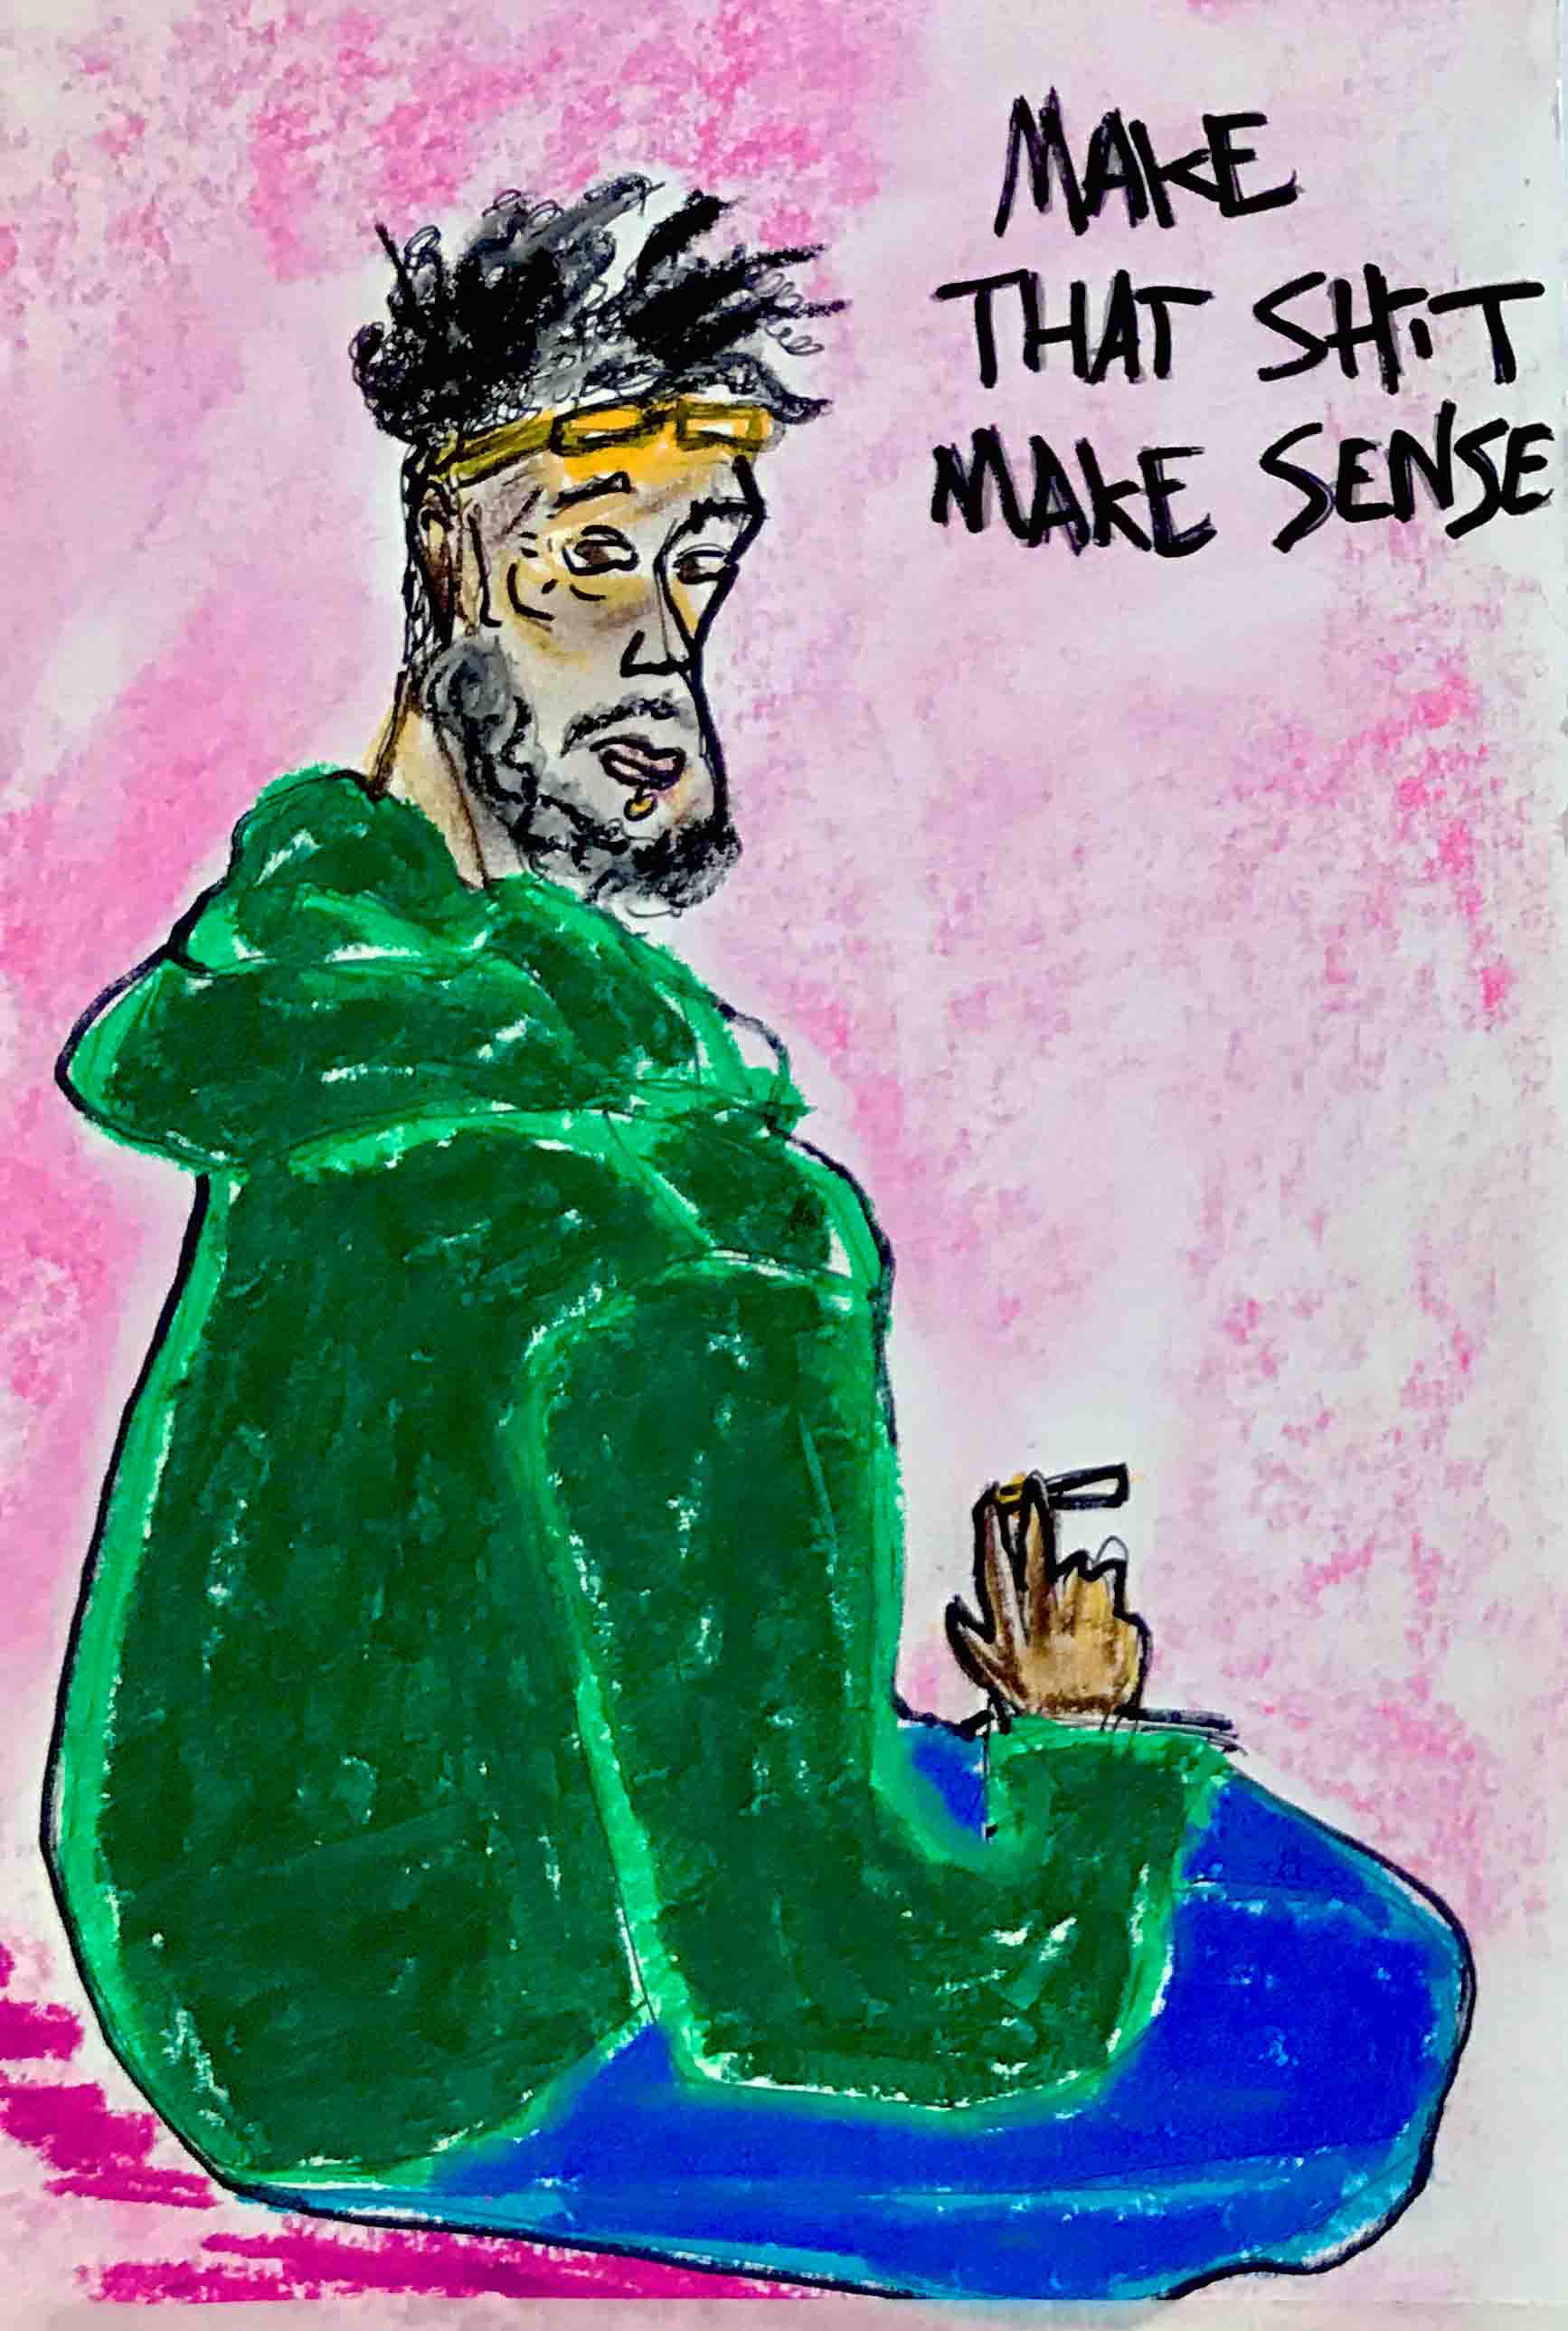 MAKE
THAT SHiT
MAKE SENSE